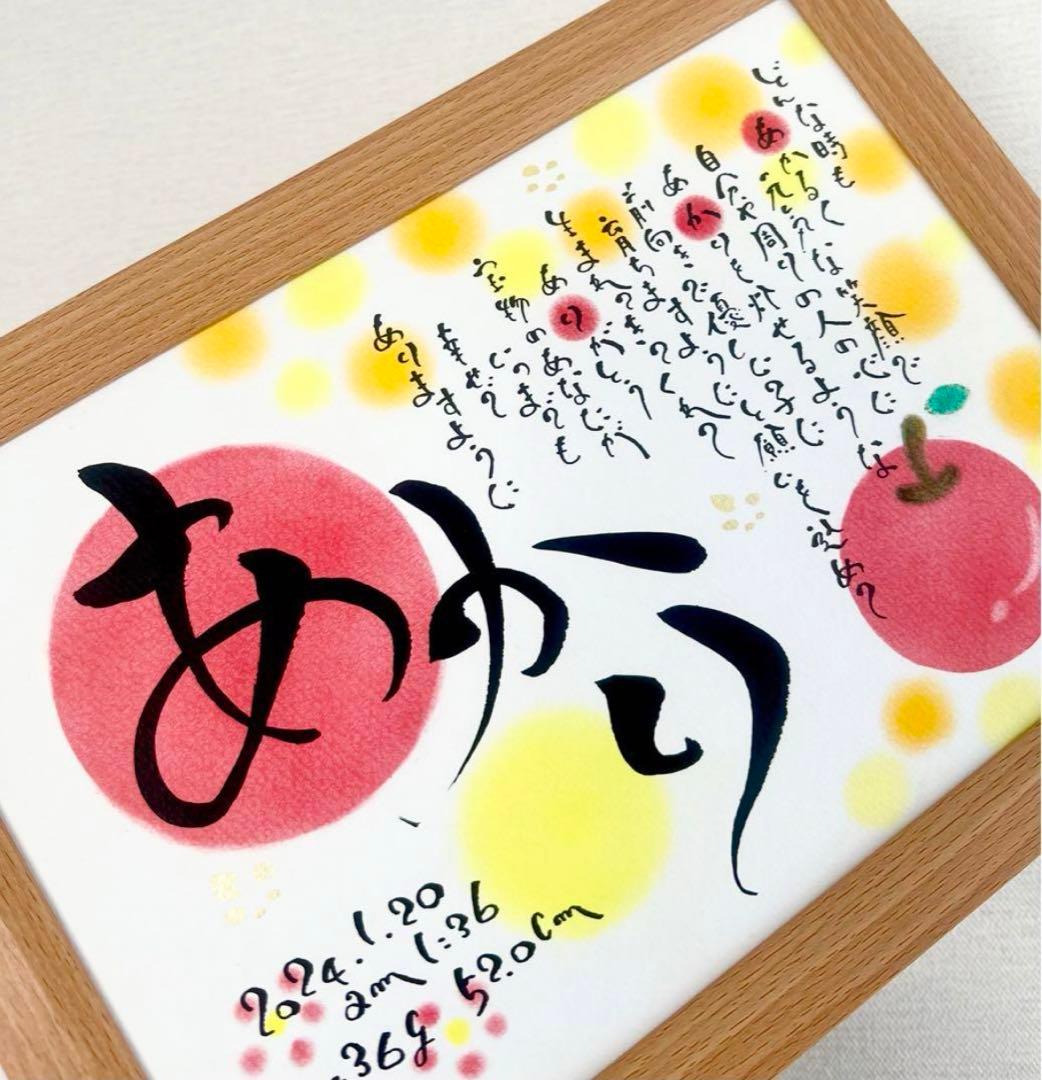 どんな時も
あかるく
元気な笑顔で
自分や周りの人の心に
あかりを灯せるような
前向きで優しい子に
育ちますようにと願いを込めて
生まれてきてくれて
ありがとう
宝物のあなたが
いつまでも
幸せで
ありますように
あかり
2024.1.20
am 1:36
36g 52.0cm